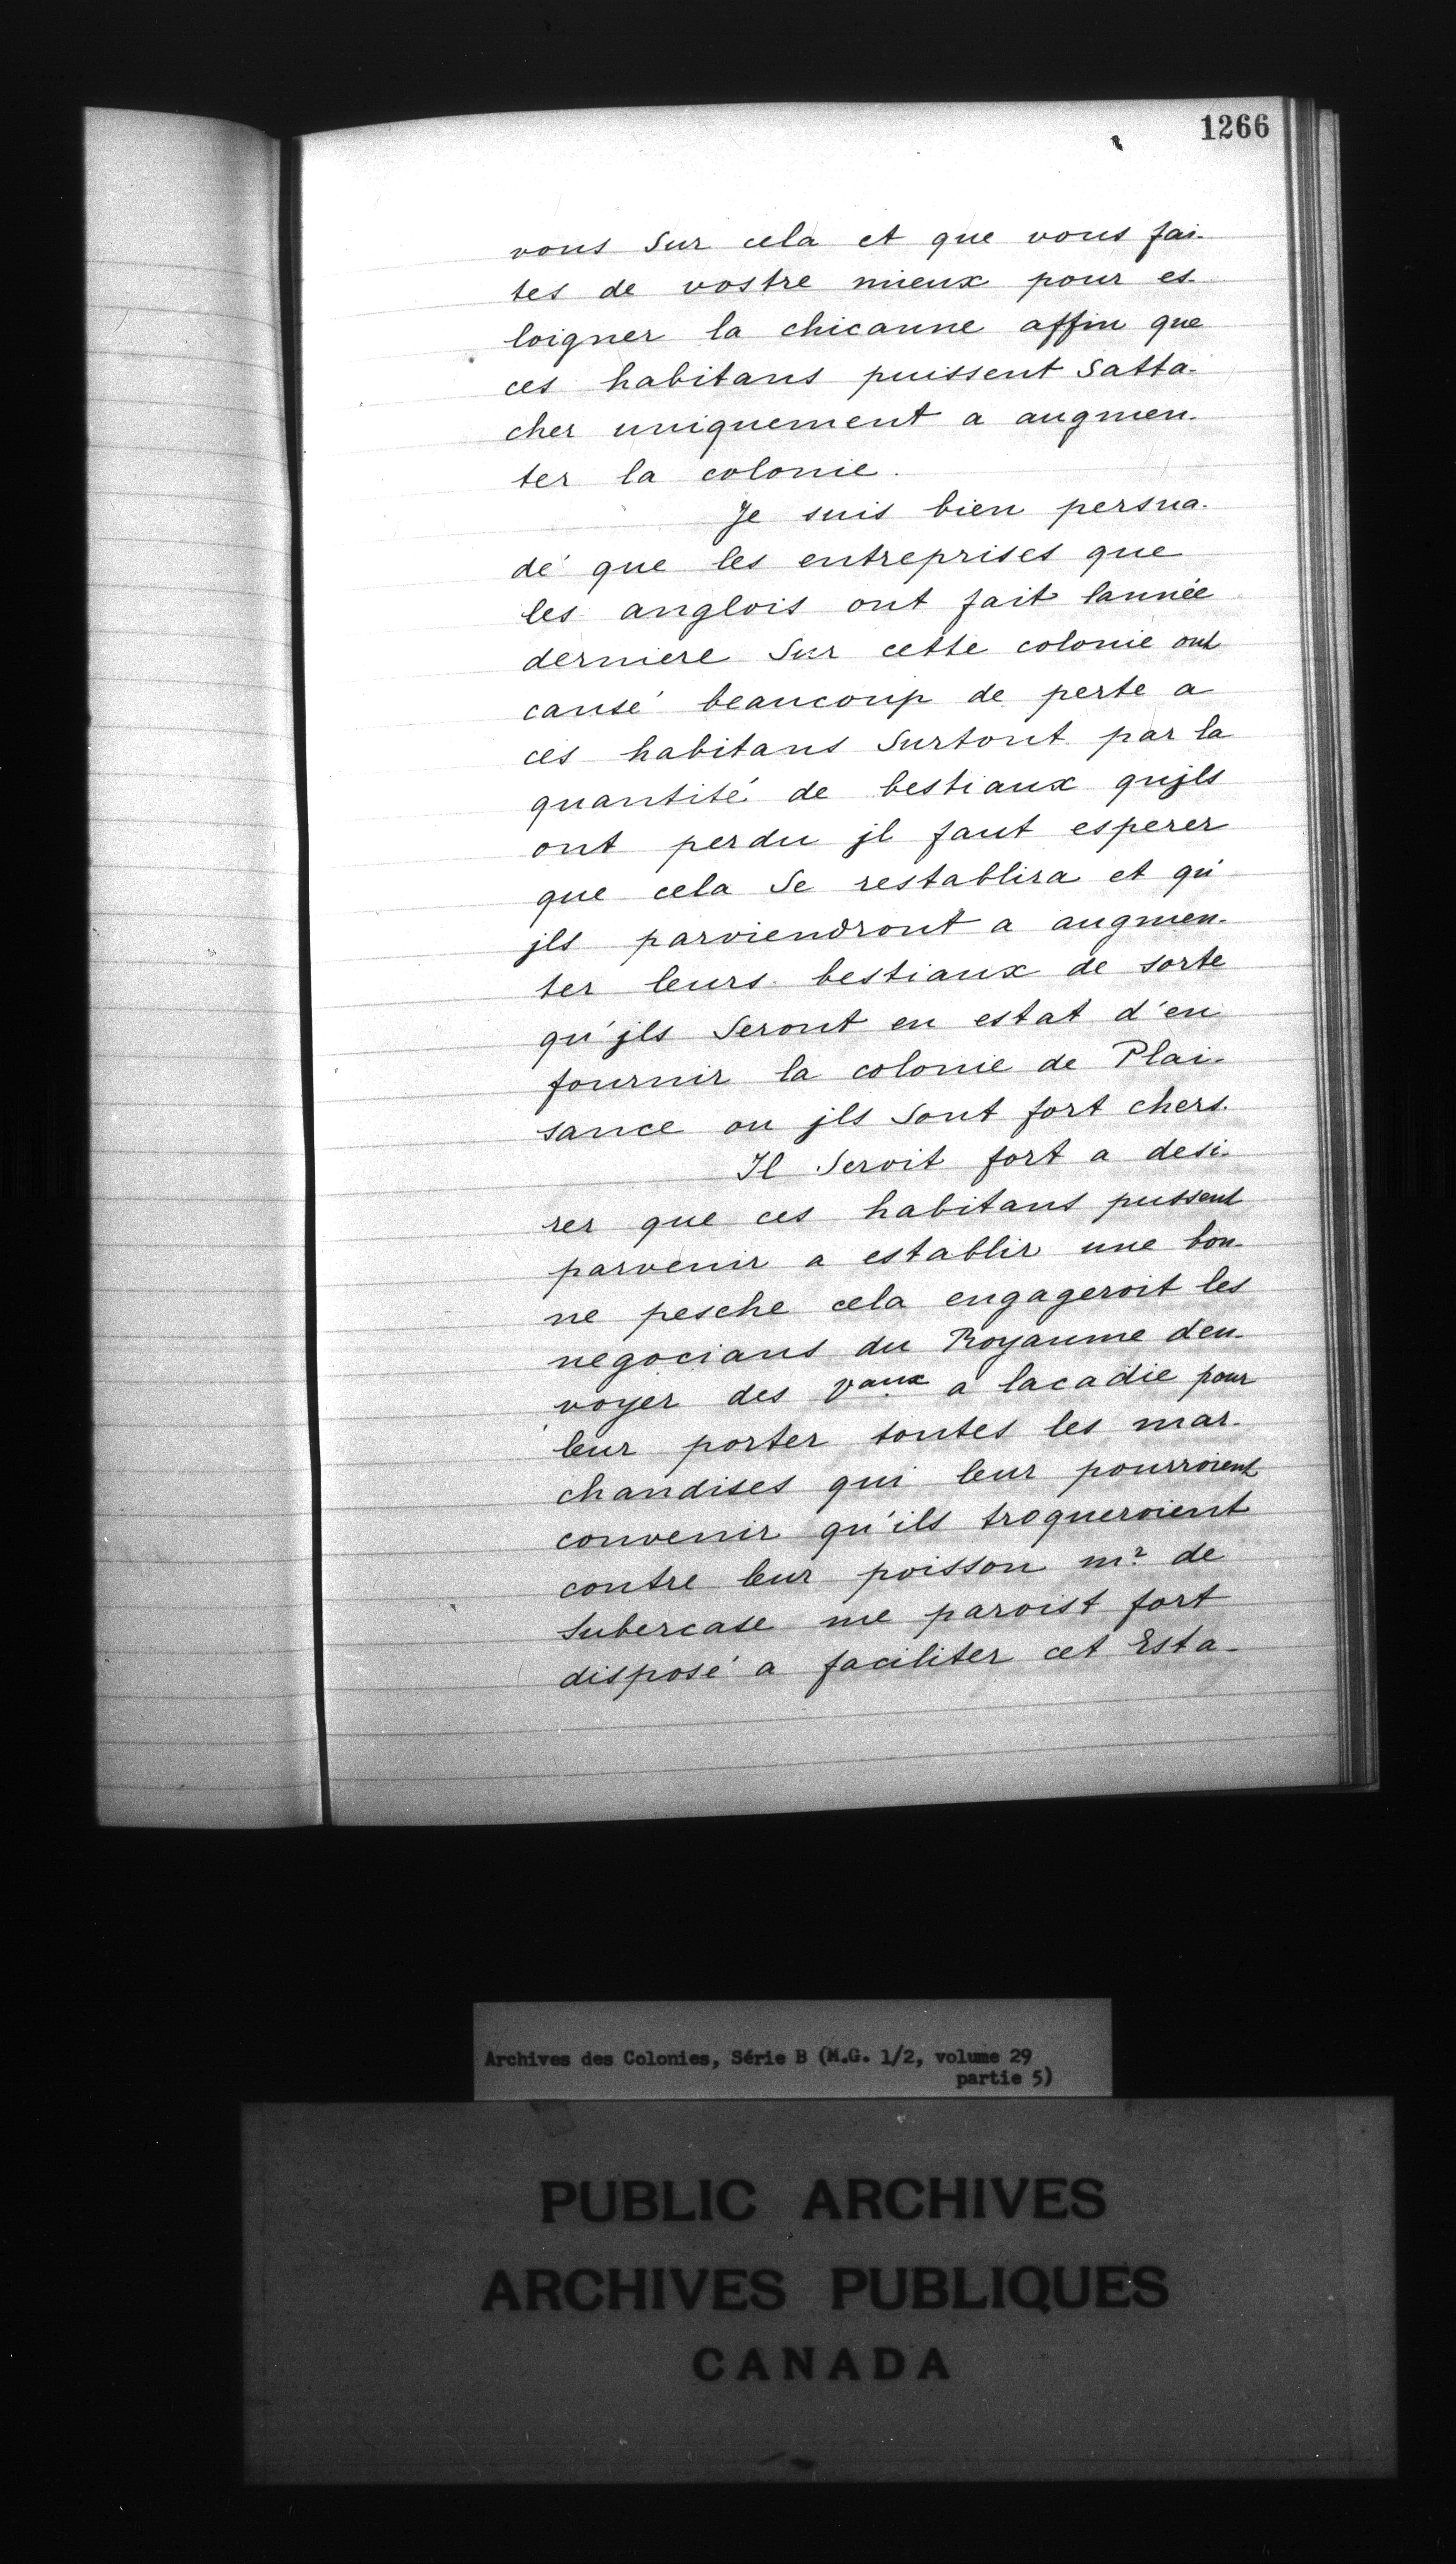 1266
vous sur cela et que vous fai-
tes de vostre mieux pour es-
loigner la chicanne affin que
ces habitans puissent satta-
cher uniquement a augmen-
ter la colonie.
Je suis bien persua-
dé que les entreprises que
les anglois ont fait lannée
derniere sur cette colonie ont
causé beaucoup de perte a
ces habitans surtout par la
quantité de bestiaux qujls
ont perdu jl faut esperer
que cela se restablira et qu'
jls parviendront a augmen-
ter leurs bestiaux de sorte
qu'jls seront en estat d'en
fournir la colonie de Plai-
sance ou jls sont fort chers.
Il seroit fort a desi-
rer que ces habitans pussent
parvenir a establir une bon-
ne pesche cela engageroit les
negocians du Royaume den-
voyer des vaux a lacadie pour
leur porter toutes les mar-
chandises qui leur pourroient
convenir qu'ils troqueroient
contre leur poisson mr. de
subercase me paroist fort
disposé a faciliter cet Esta-
Archives des Colonies, Série B (M.G. 1/2, volume 29
partie 5)
PUBLIC ARCHIVES
ARCHIVES PUBLIQUES
CANADA